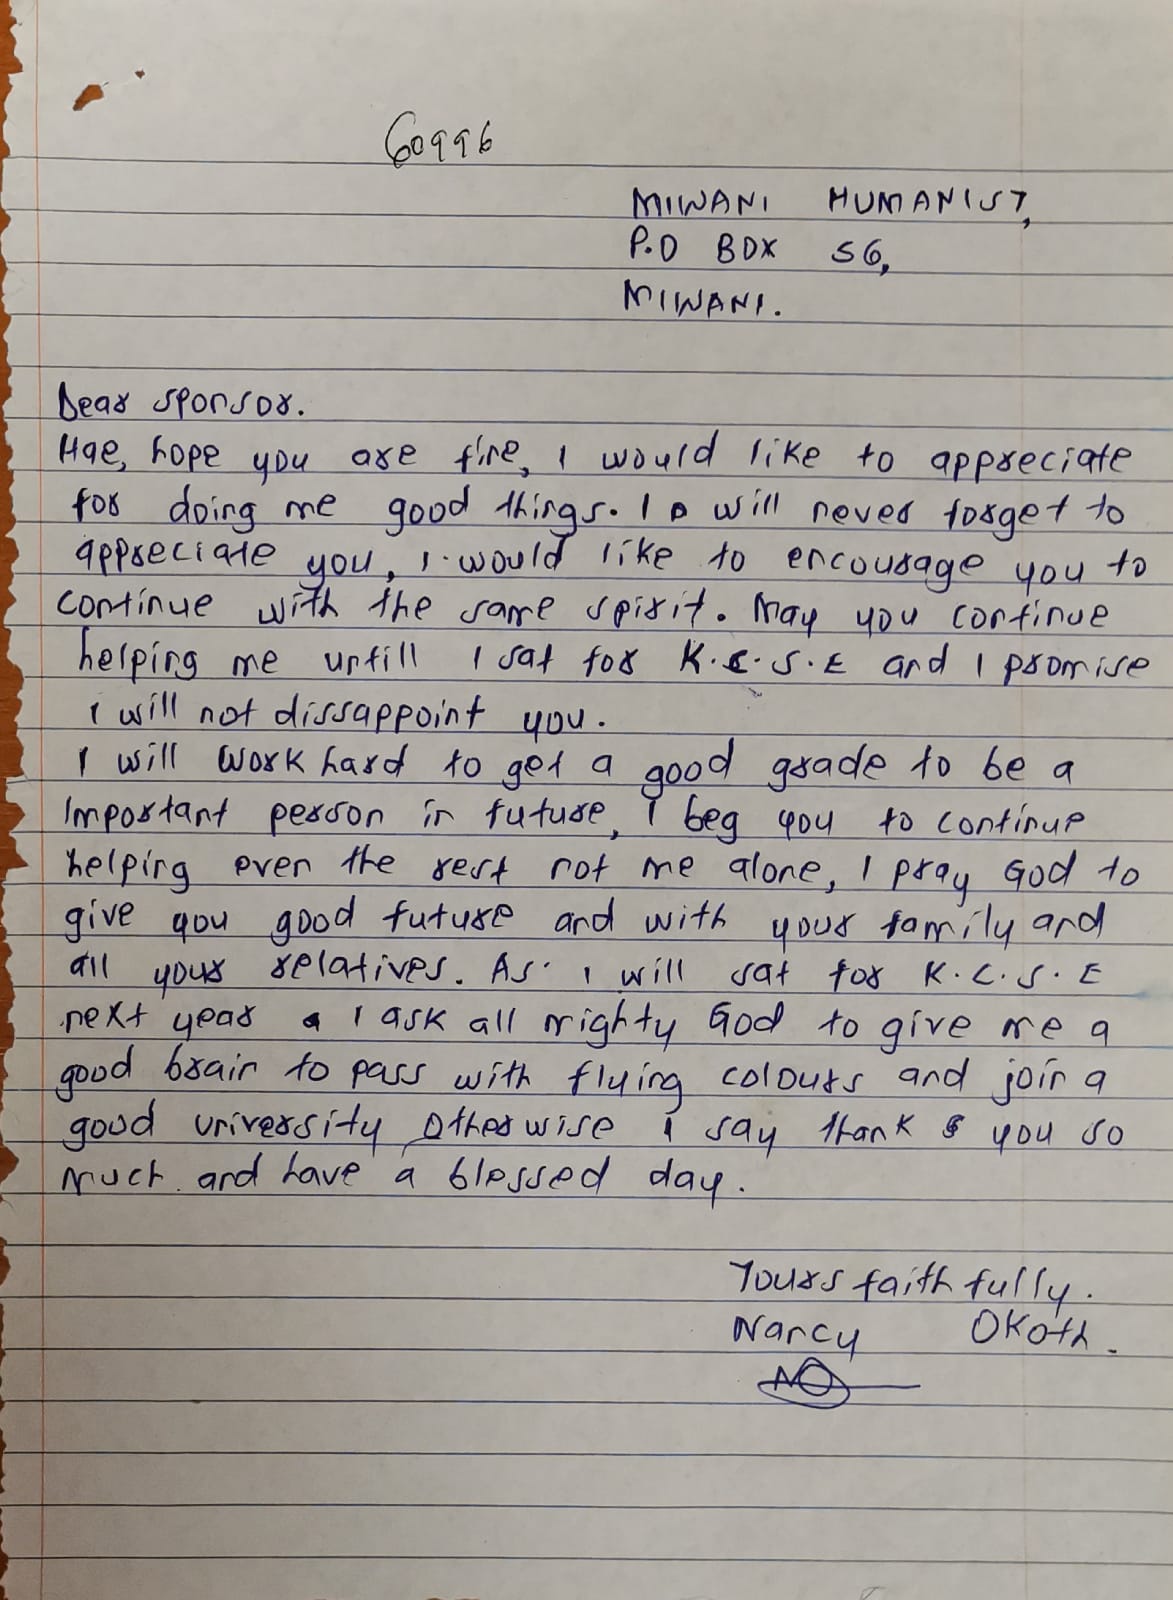 60996
MIWANI HUMANIST,
P.O BOX 56,
MIWANI.
Dear sponsor.
Hae, hope you are fine, I would like to appreciate
for doing me good things. I will never forget to
appreciate you, I would like to encourage you to
continue with the same spirit. May you continue
helping me untill I sat for K.C.S.E and I promise
I will not dissappoint you.
I will work hard to get a good grade to be a
important person in future, I beg you to continue
helping even the rest not me alone, I pray God to
give you good future and with your family and
all your relatives. As I will sat for K.C.S.E
next year I ask all mighty God to give me a
good brain to pass with flying colours and join a
good university Otherwise I say thank you so
much and have a blessed day.
Yours faithfully.
Nancy Okoth.
NO